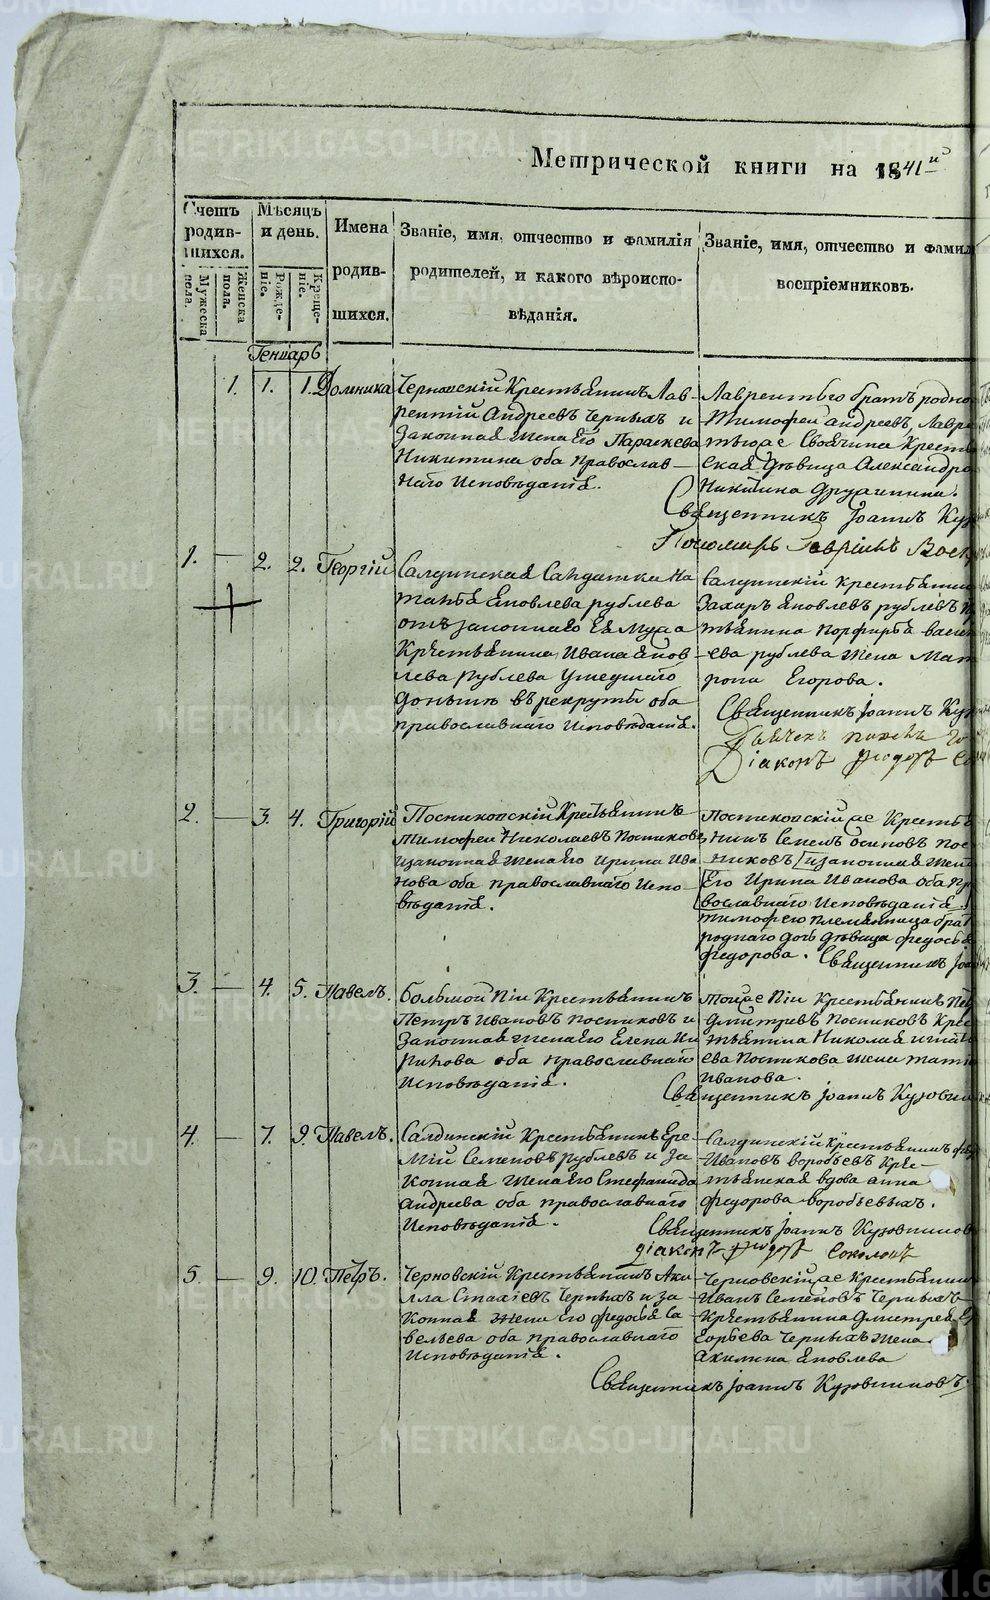 Метрической книги на 1841й
Счетъ родив-шихся.
Мужеска пола.
Женска пола.
Мѣсяцъ и день.
Рожде-ніе.
Креще-ніе.
Имена родив-шихся.
Званіе, имя, отчество и фамилія
родителей, и какого вѣроиспо-
вѣданія.
Званіе, имя, отчество и фамил
воспріемниковъ.
Генварь
1. 1. 1. Домника
Черновскій Крестьянинъ Лав-
рентій Андреевъ Черныхъ и
Законная жена Его Параскева
Никитина оба православ-
наго Исповѣданія.
Лаврентьго братъ родно
Тимофей Андреевъ, Лавре
тьюже Своячина Кресть
ская дѣвица Александра
Никитина Дружинина.
Священникъ Іоаннъ Куз
Пономарь Гавріилъ Воск
1. — 2. 2. Георгій
Салдинская Салдатка На
талья Яковлева рублева
отъ законнаго Ея Мужа
Крестьянина Ивана Яков
лева Рублева Ушедшаго
доньшѣ въ рекруты оба
православнаго Исповѣданія.
Салдинскій крестьянин
Захаръ Яковлевъ рублевъ К
тьянина порфирья васил
ева рублева жена Мат
рона Егорова.
Священникъ Іоаннъ Куз
Діаконъ Феодоръ Со
2. — 3. 4. Григорій
Посниковскій Крестьянинъ
Тимофей Николаевъ Посниковъ
изаконная жена Его Ирина Ива
нова оба православнаго Испо
вѣданія.
Посниковскій же Кресть
нинъ Семенъ Осиповъ Пос
никовъ [изаконная жен
Его Ирина Иванова оба пр
вославнаго Исповѣданія.]
тимофею племянница брат
роднаго дочь дѣвица федосья
федорова. Священникъ Іоа
3. — 4. 5. Павелъ.
Большой Піи Крестьянинъ
Петръ Ивановъ Посниковъ и
Законная жена Его Елена Ки
рикова оба православнаго
Исповѣданія.
Тойже Піи Крестьянинъ Пе
Дмитревъ Посниковъ Крес
тьянина Николая игнать
ева Посникова жена тать
Иванова.
Священникъ Іоаннъ Кузовни
4. — 7. 9. Павелъ.
Салдинскій Крестьянинъ Ере
мій Семеновъ рублевъ и за
конная жена Его Стефанида
Андреева оба православнаго
Исповѣданія.
Салдинскій Крестьянинъ фе
Ивановъ воробьевъ Кре-
тьянская вдова анна
федорова воробьевыхъ.
Священникъ Іоаннъ Кузовников
діаконъ Феодоръ Соколовъ
5. — 9. 10. Петръ.
Черновскій Крестьянинъ Аки
лла Стахіевъ Черныхъ и за
конная жена Его федосья Са
вельева оба православнаго
Исповѣданія.
Черновскій же Крестьянин
Иванъ Семеновъ Черныхъ
Крестьянина Дмитрея Е
горьева Черныхъ жена
Акилина Яковлева
Священникъ Іоаннъ Кузовниковъ.
METRIKI.GASO-URAL.RU
METRIKI.GASO-URAL.RU
METRIKI.GASO-URAL.RU